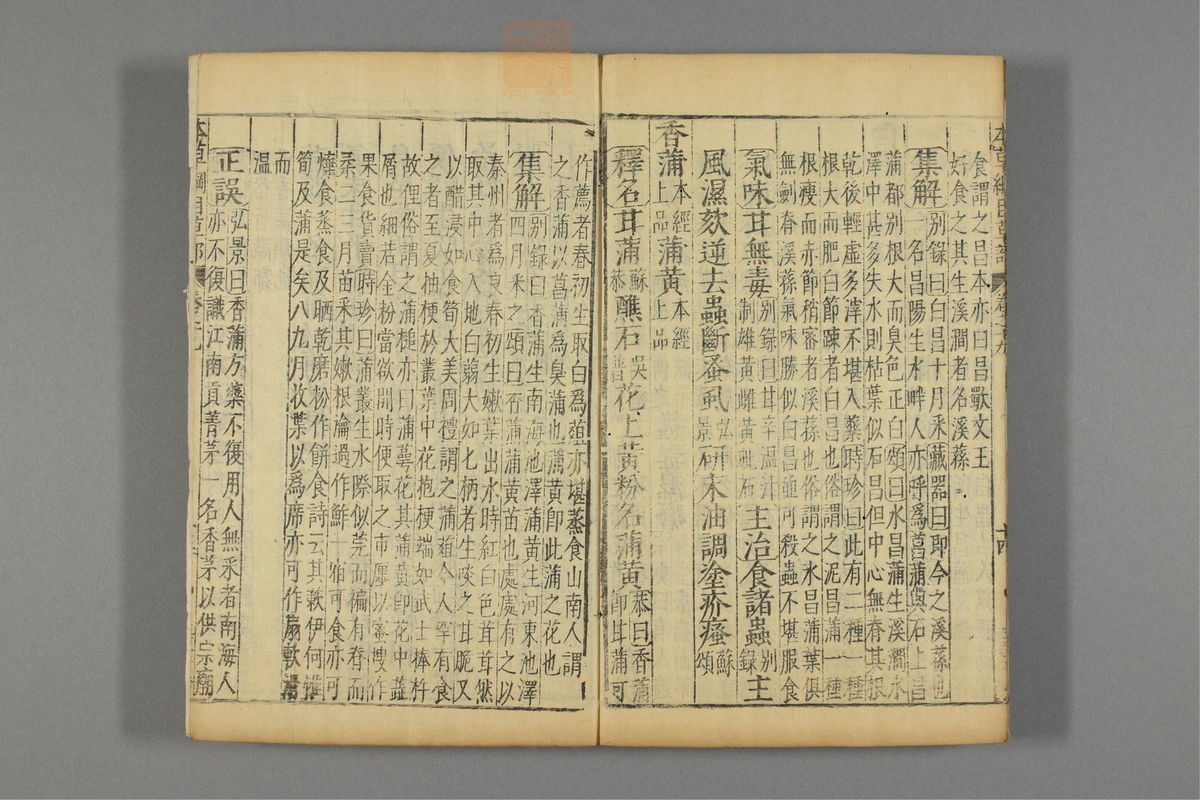 食謂之昌本亦曰昌歜文王
好食之其生溪澗者名溪蓀
集解別錄曰白昌十月采藏器曰即今之溪蓀也
一名昌陽生水畔人亦呼為菖蒲與石上昌
蒲都別根大而臭色正白頌曰水昌蒲生溪澗水
澤中甚多失水則枯葉似石昌但中心無脊其根
乾後輕虛多滓不堪入藥時珍曰此有二種一種
根大而肥白節疎者白昌也俗謂之泥昌蒲一種
根瘦而赤節稍密者溪蓀也俗謂之水昌蒲葉俱
無劍脊溪蓀氣味勝似白昌並可殺蟲不堪服食
氣味甘無毒別錄曰甘辛溫汁制雄黃雌黃砒石主治食諸蟲別錄主
風濕欬逆去蟲斷蚤虱弘景研末油調塗疥瘙蘇頌
香蒲本經上品蒲黃本經上品
釋名甘蒲蘇恭醮石吳普花上黃粉名蒲黃恭曰香蒲即甘蒲可
作薦者春初生取白為葅亦堪蒸食山南人謂
之香蒲以菖蒲為臭蒲也蒲黃即此蒲之花也
集解別錄曰香蒲生南海池澤蒲黃生河東池澤
四月采之頌曰香蒲蒲黃苗也處處有之以
秦州者為良春初生嫩葉出水時紅白色茸茸然
取其中心入地白蒻大如匕柄者生啖之甘脆又
以醋浸如食筍大美周禮謂之蒲葅今人罕有食
之者至夏抽梗於叢葉中花抱梗端如武士棒杵
故俚俗謂之蒲槌亦曰蒲萼花其蒲黃即花中蕊
屑也細若金粉當欲開時便取之市廛以蜜搜作
果食貨賣時珍曰蒲叢生水際似莞而褊有脊而
柔二三月苗采其嫩根瀹過作鮓一宿可食亦可
煠食蒸食及晒乾磨粉作餅食詩云其蔌伊何惟
筍及蒲是矣八九月收葉以為席亦可作扇軟滑
而
溫
正誤弘景曰香蒲方藥不復用人無采者南海人
亦不復識江南貢菁茅一名香茅以供宗廟